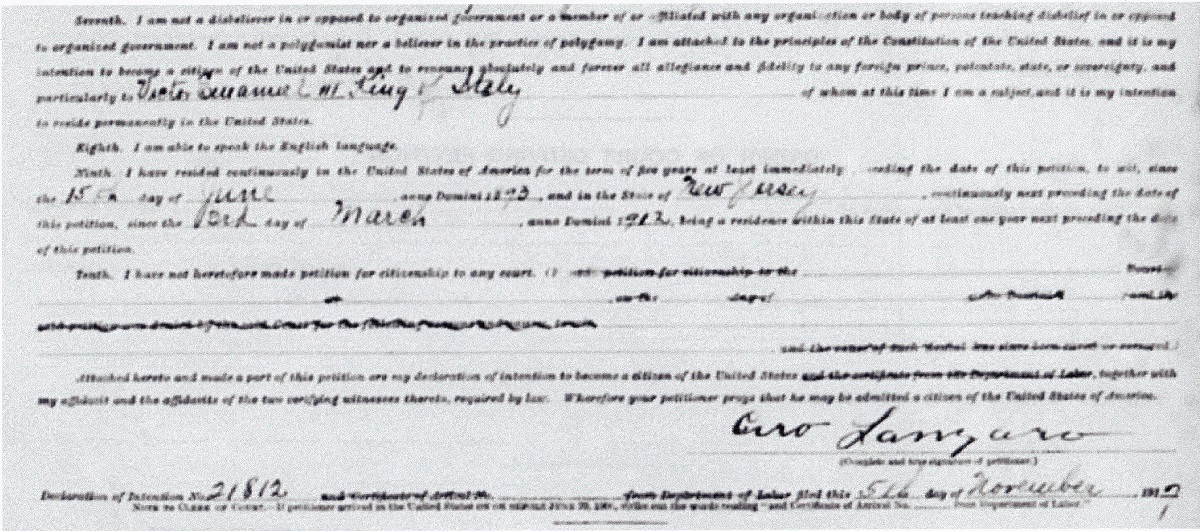 Seventh. I am not a disbeliever in or opposed to organized government or a member of or affiliated with any organization or body of persons teaching disbelief in or opposed
to organized government. I am not a polygamist nor a believer in the practice of polygamy. I am attached to the principles of the Constitution of the United States, and it is my
intention to become a citizen of the United States and to renounce absolutely and forever all allegiance and fidelity to any foreign prince, potentate, state, or sovereignty, and
particularly to Victor Emanuel III King of Italy of whom at this time I am a subject, and it is my intention
to reside permanently in the United States.
Eighth. I am able to speak the English language.
Ninth. I have resided continuously in the United States of America for the term of five years at least immediately preceding the date of this petition, to wit, since
the 15th day of June, anno Domini 1893, and in the State of New Jersey, continuously next preceding the date of
this petition, since the 3rd day of March, anno Domini 1912, being a residence within this State of at least one year next preceding the date
of this petition.
Tenth. I have not heretofore made petition for citizenship to any court. (I petition for citizenship to the Court of
at, on the day of, anno Domini, and the
said petition was denied by the said Court for the following
and the cause of such denial has since been cured or removed.)
Attached hereto and made a part of this petition are my declaration of intention to become a citizen of the United States and the certificate from the Department of Labor, together with
my affidavit and the affidavits of the two verifying witnesses thereto, required by law. Wherefore your petitioner prays that he may be admitted a citizen of the United States of America.
Ciro Lanzaro
(Complete and true signature of petitioner.)
Declaration of Intention No. 21812 and Certificate of Arrival No. from Department of Labor filed this 5th day of November, 191
NOTE TO CLERK OF COURT.—If petitioner arrived in the United States on or before JUNE 29, 1906, strike out the words reading "and Certificate of Arrival No. from Department of Labor.